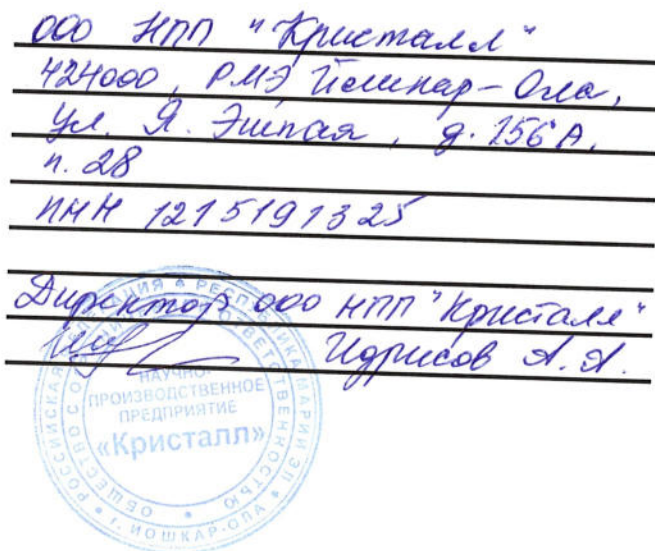 ООО НПП "Кристалл"
424000, РМЭ Йошкар-Ола,
ул. Я. Эшпая, д. 156А,
п. 28
ИНН 1215191325
Директор ООО НПП "Кристалл"
Идрисов А. А.
РОССИЙСКАЯ ФЕДЕРАЦИЯ * РЕСПУБЛИКА МАРИЙ ЭЛ * г. ЙОШКАР-ОЛА *
ОБЩЕСТВО С ОГРАНИЧЕННОЙ ОТВЕТСТВЕННОСТЬЮ
НАУЧНО-
ПРОИЗВОДСТВЕННОЕ
ПРЕДПРИЯТИЕ
«Кристалл»